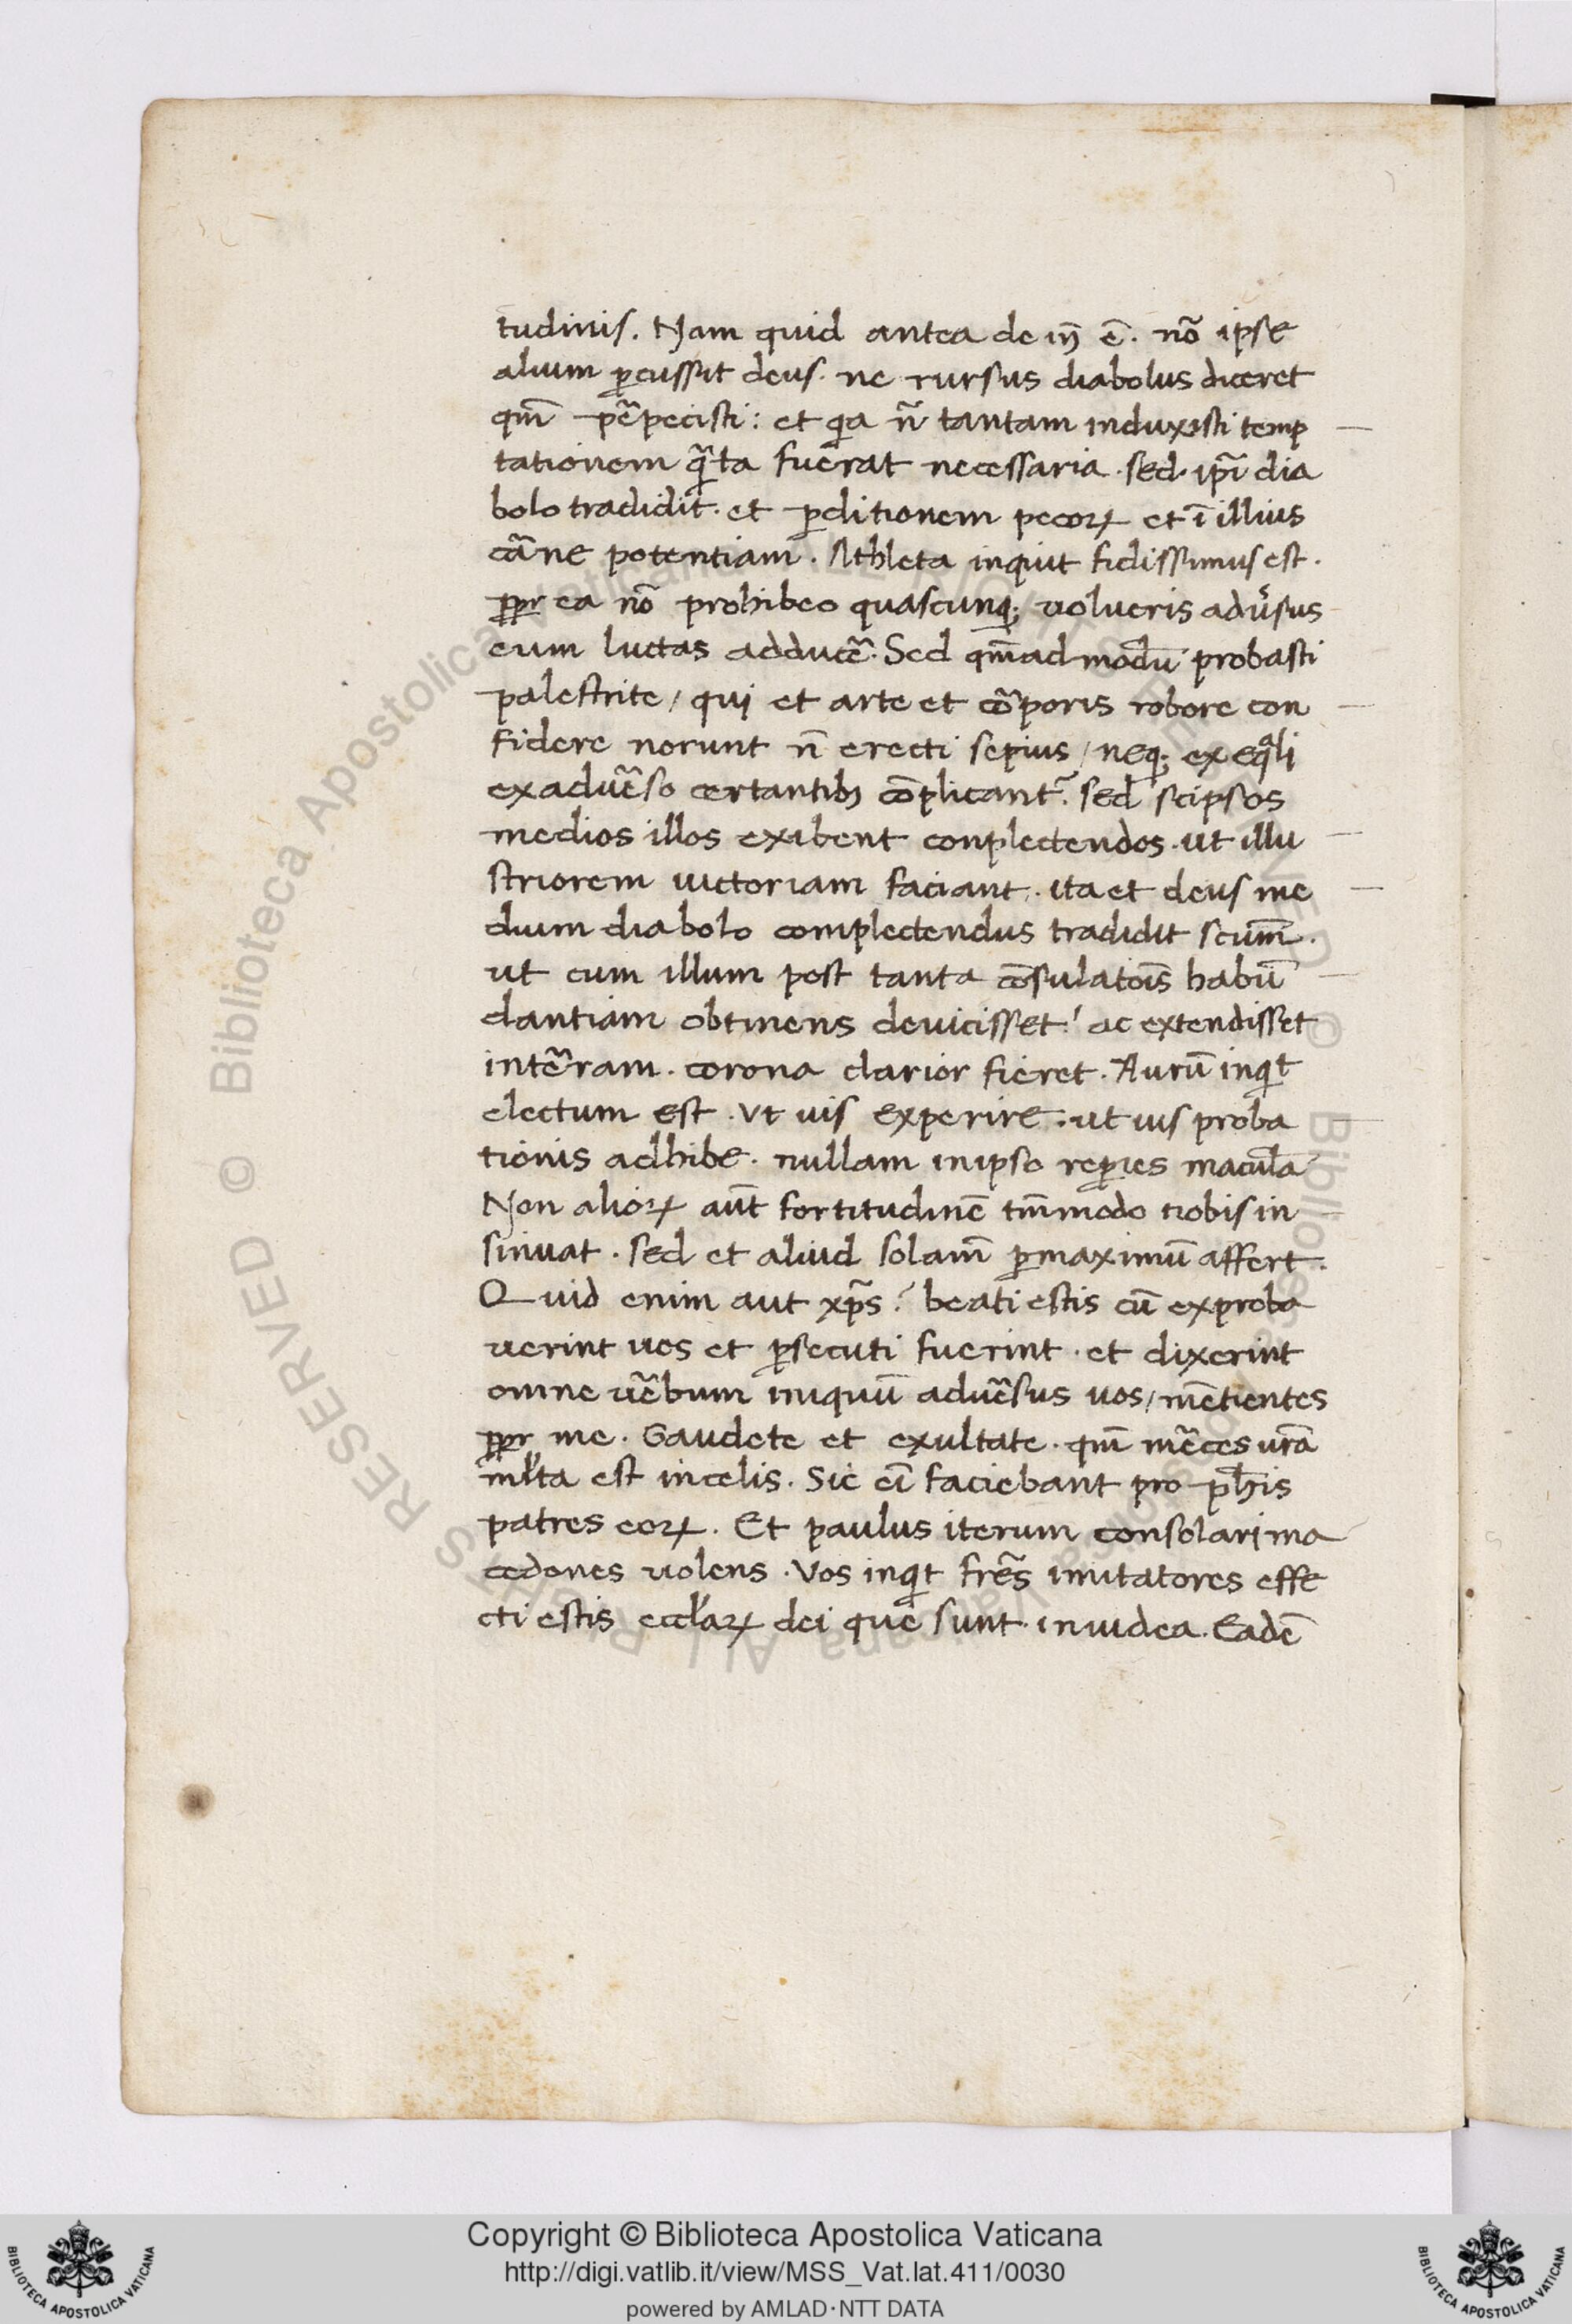 tudinis. Nam quid antea de iñ ẽ. nõ ipse
alium ꝑcussit deus. ne rursus diabolus diceret
qm̃ pẽpecisti: et qia ñ tantam induxisti temp
tationem qͣ̃ta fuerat necessaria. sed. ip̃i dia
bolo tradidit. et ꝑditionem pecoꝝ et ĩ illius
cãne potentiam. Athleta inquit fidissimus est.
ꝓpr ea nõ prohibeo quascunqꝫ volueris adv̓sus
eum luctas adducẽ. Sed qm̃admodũ probasti
palestrite / qui et arte et cõporis robore con
fidere norunt ñ erecti sepius / neqꝫ ex eqͣli
ex advẽso certantibꝫ cõplicant᷑. sed seipsos
medios illos exibent conplectendos. ut illu
striorem uictoriam faciant. ita et deus me
dium diabolo complectendus tradidit scum̃.
ut cum illum post tanta cõsulatoĩs habũ
dantiam obtinens devicisset! ac extendisset
in tẽram. corona clarior fieret. Aurũ inqͥt
electum est. Vt uis experire. ut uis proba
tionis adhibe. nullam in ipso reꝑies maculã
Non alioꝝ aut̃ fortitudinẽ tm̃modo nobis in
sinuat. sed et aliud solam̃ ꝑmaximũ affert.
Quid enim aut xp̃s? beati estis cũ exproba
uerint uos et ꝑsecuti fuerint. et dixerint
omne vẽbum iniquũ advẽsus uos / mẽtientes
ꝓpr me. Gaudete et exultate. qm̃ mẽces ur̃a
ml̓ta est in celis. Sic eĩ faciebant pro ph̃is
patres eoꝝ. Et paulus iterum consolari ma
cedones uolens. Vos inqͥt fr̃es imitatores effe
cti estis eccl̓aꝝ dei que sunt in iudea. Eadẽ
Copyright © Biblioteca Apostolica Vaticana
http://digi.vatlib.it/view/MSS_Vat.lat.411/0030
powered by AMLAD·NTT DATA